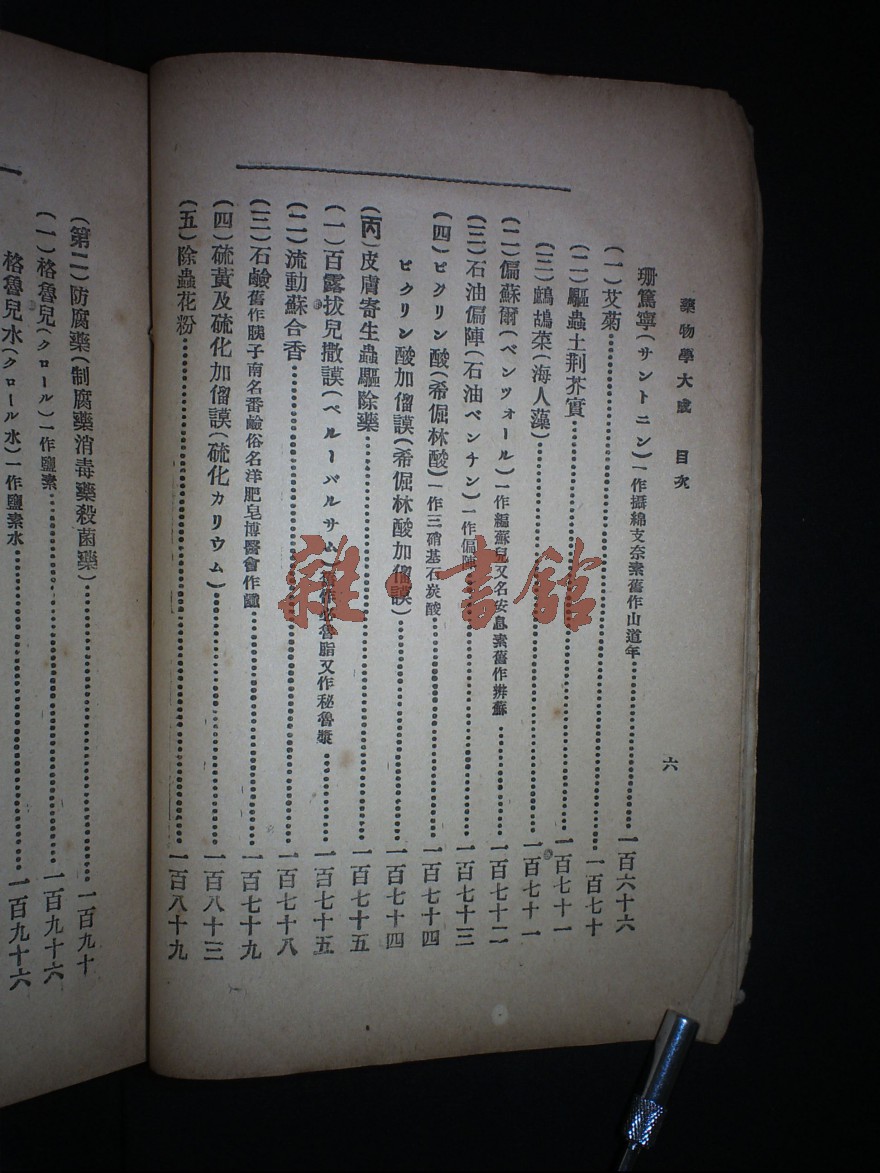 藥物學大成 目次 六
珊篤寧(サントニン)一作攝綿支奈素舊作山道年 一百六十六
(一)艾菊 一百七十
(二)驅蟲土荆芥實 一百七十一
(三)鷓鴣菜(海人藻) 一百七十一
(二)偏蘇爾(ベンツォール)一作編蘇兒又名安息素舊作辨蘇 一百七十二
(三)石油偏陣(石油ベンチン)一作偏陣 一百七十三
(四)ピクリン酸(希倔林酸)一作三硝基石炭酸 一百七十四
ピクリン酸加僧謨(希倔林酸加僧謨) 一百七十四
(丙)皮膚寄生蟲驅除藥 一百七十五
(一)百露拔兒撒謨(ペルーバルサム)魯脂又作秘魯漿 一百七十五
(二)流動蘇合香 一百七十八
(三)石鹼舊作胰子南名番鹼俗名洋肥皂博醫會作 一百七十九
(四)硫黃及硫化加僧謨(硫化カリウム) 一百八十三
(五)除蟲花粉 一百八十九
(第二)防腐藥(制腐藥消毒藥殺菌藥) 一百九十
(一)格魯兒(クロール)一作鹽素 一百九十六
格魯兒水(クロール水)一作鹽素水 一百九十六
雜·書館